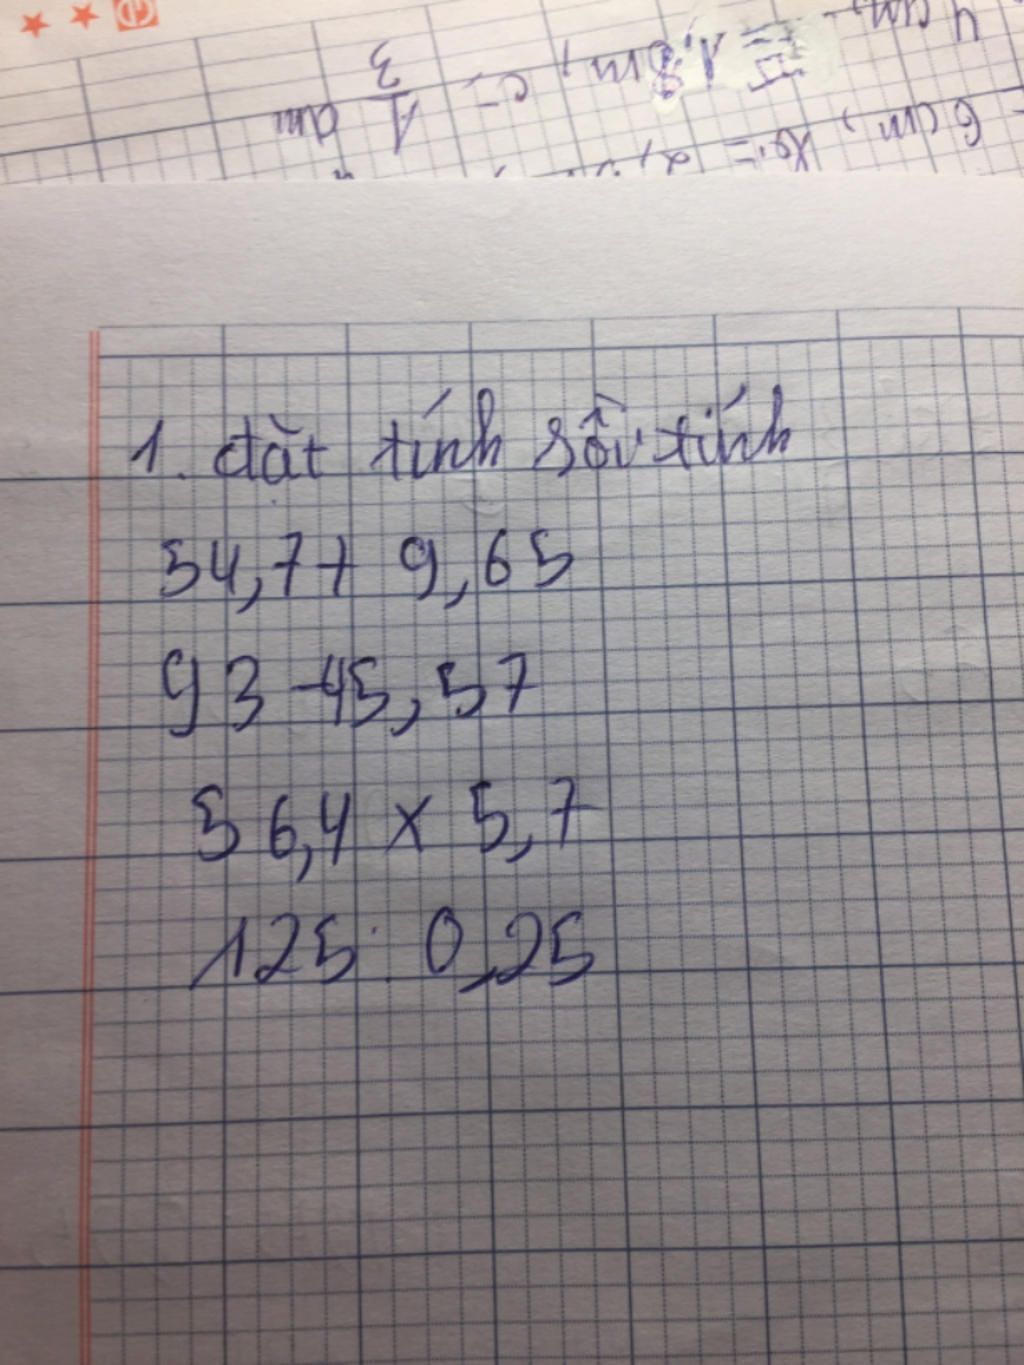 1. đặt tính rồi tính
54,7 + 9,65
93 - 45,57
56,4 x 5,7
125 : 0,25